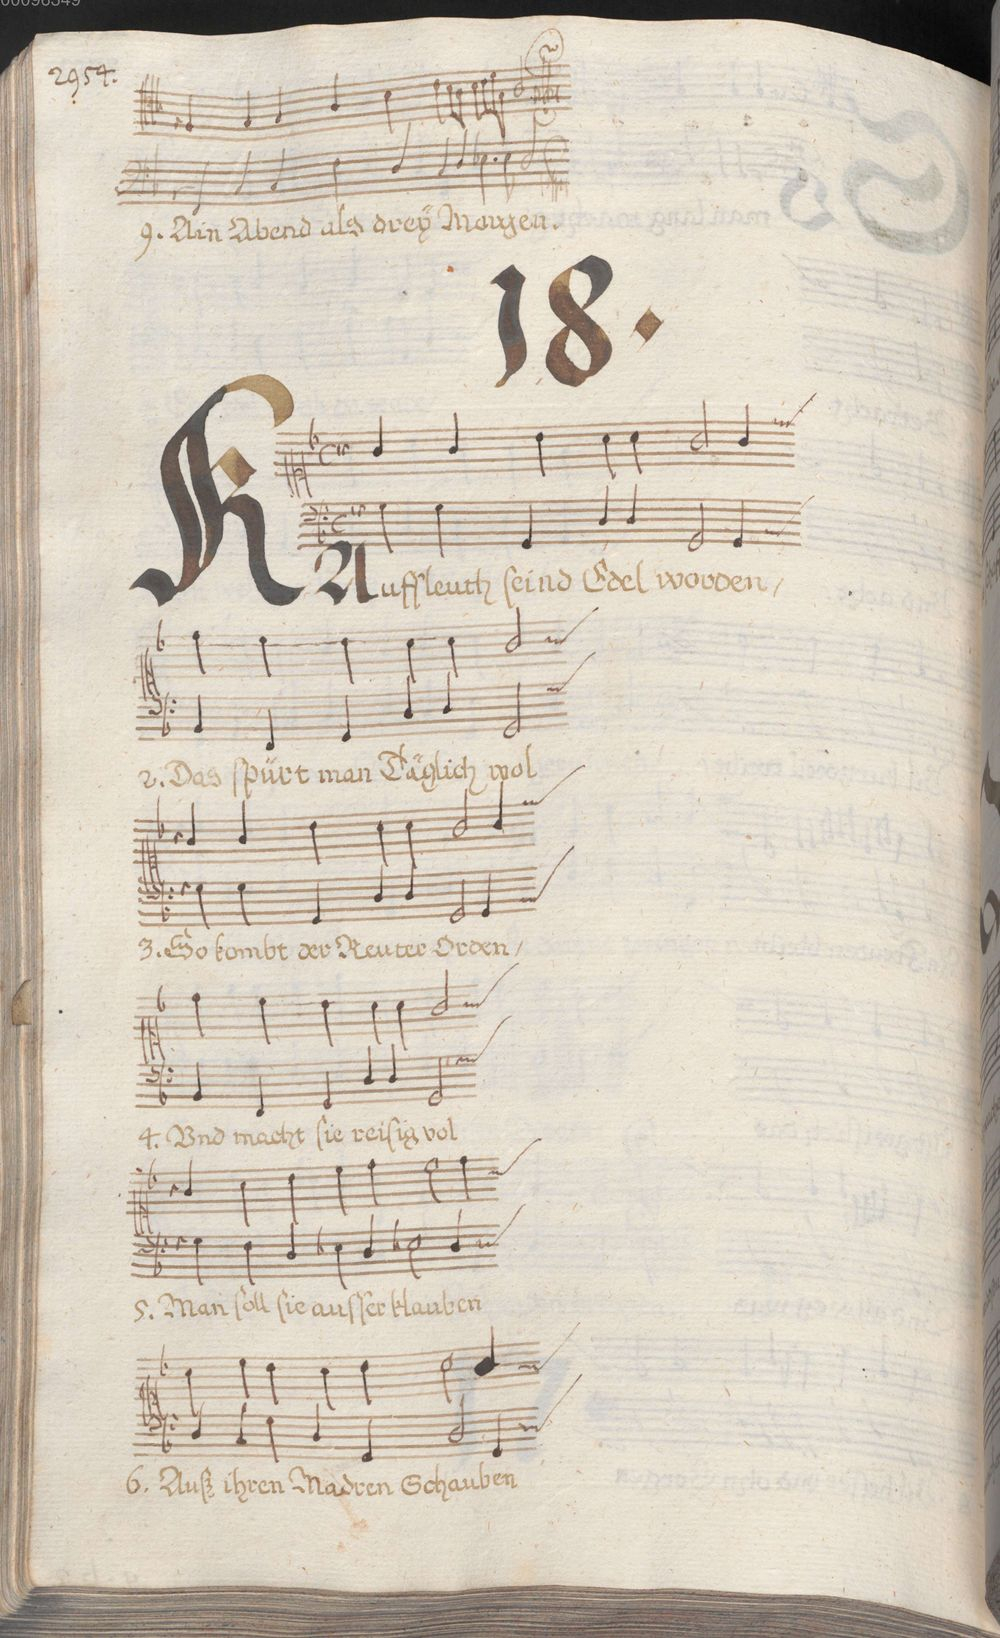 00096349
2954.
9. Ain Abend als dreÿ Morgen.
18.
KAuffleuth seind Edel worden/
2. Das spürt man Täglich wol
3. So kombt der Reuter Orden/
4. Vnd macht sie reisig vol
5. Man soll sie ausserklauben
6. Auß ihren Madren Schauben